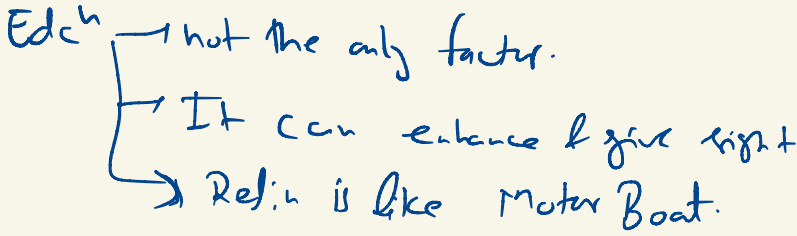 Edcⁿ → not the only factor.
→ It can enhance & give right
→ Reln is like Motor Boat.